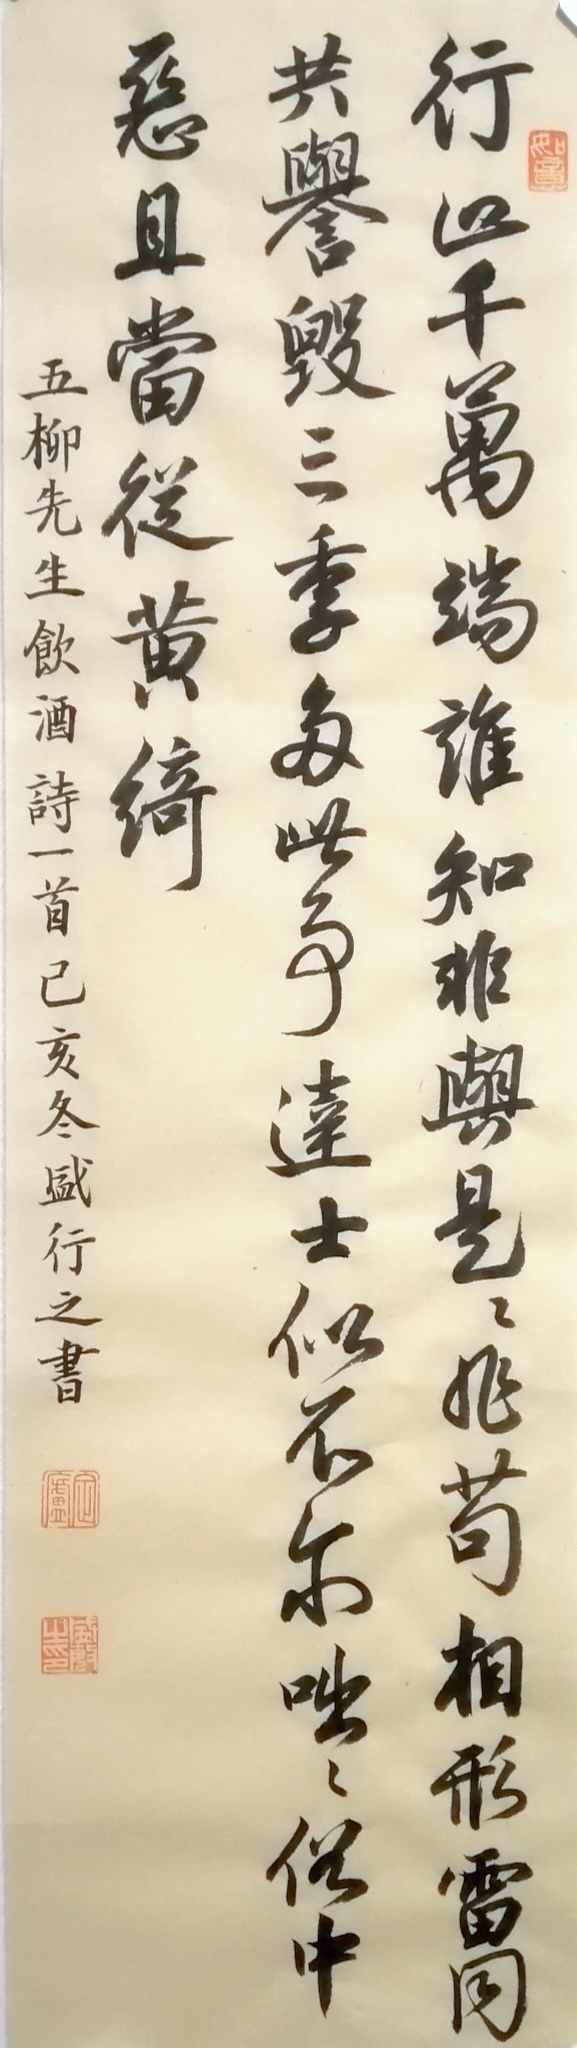 行止千萬端誰知非與是〻非苟相形雷同
共譽毀三季多此事達士似不尓咄〻俗中
惡且當從黄綺
五柳先生飲酒詩一首己亥冬盛行之書